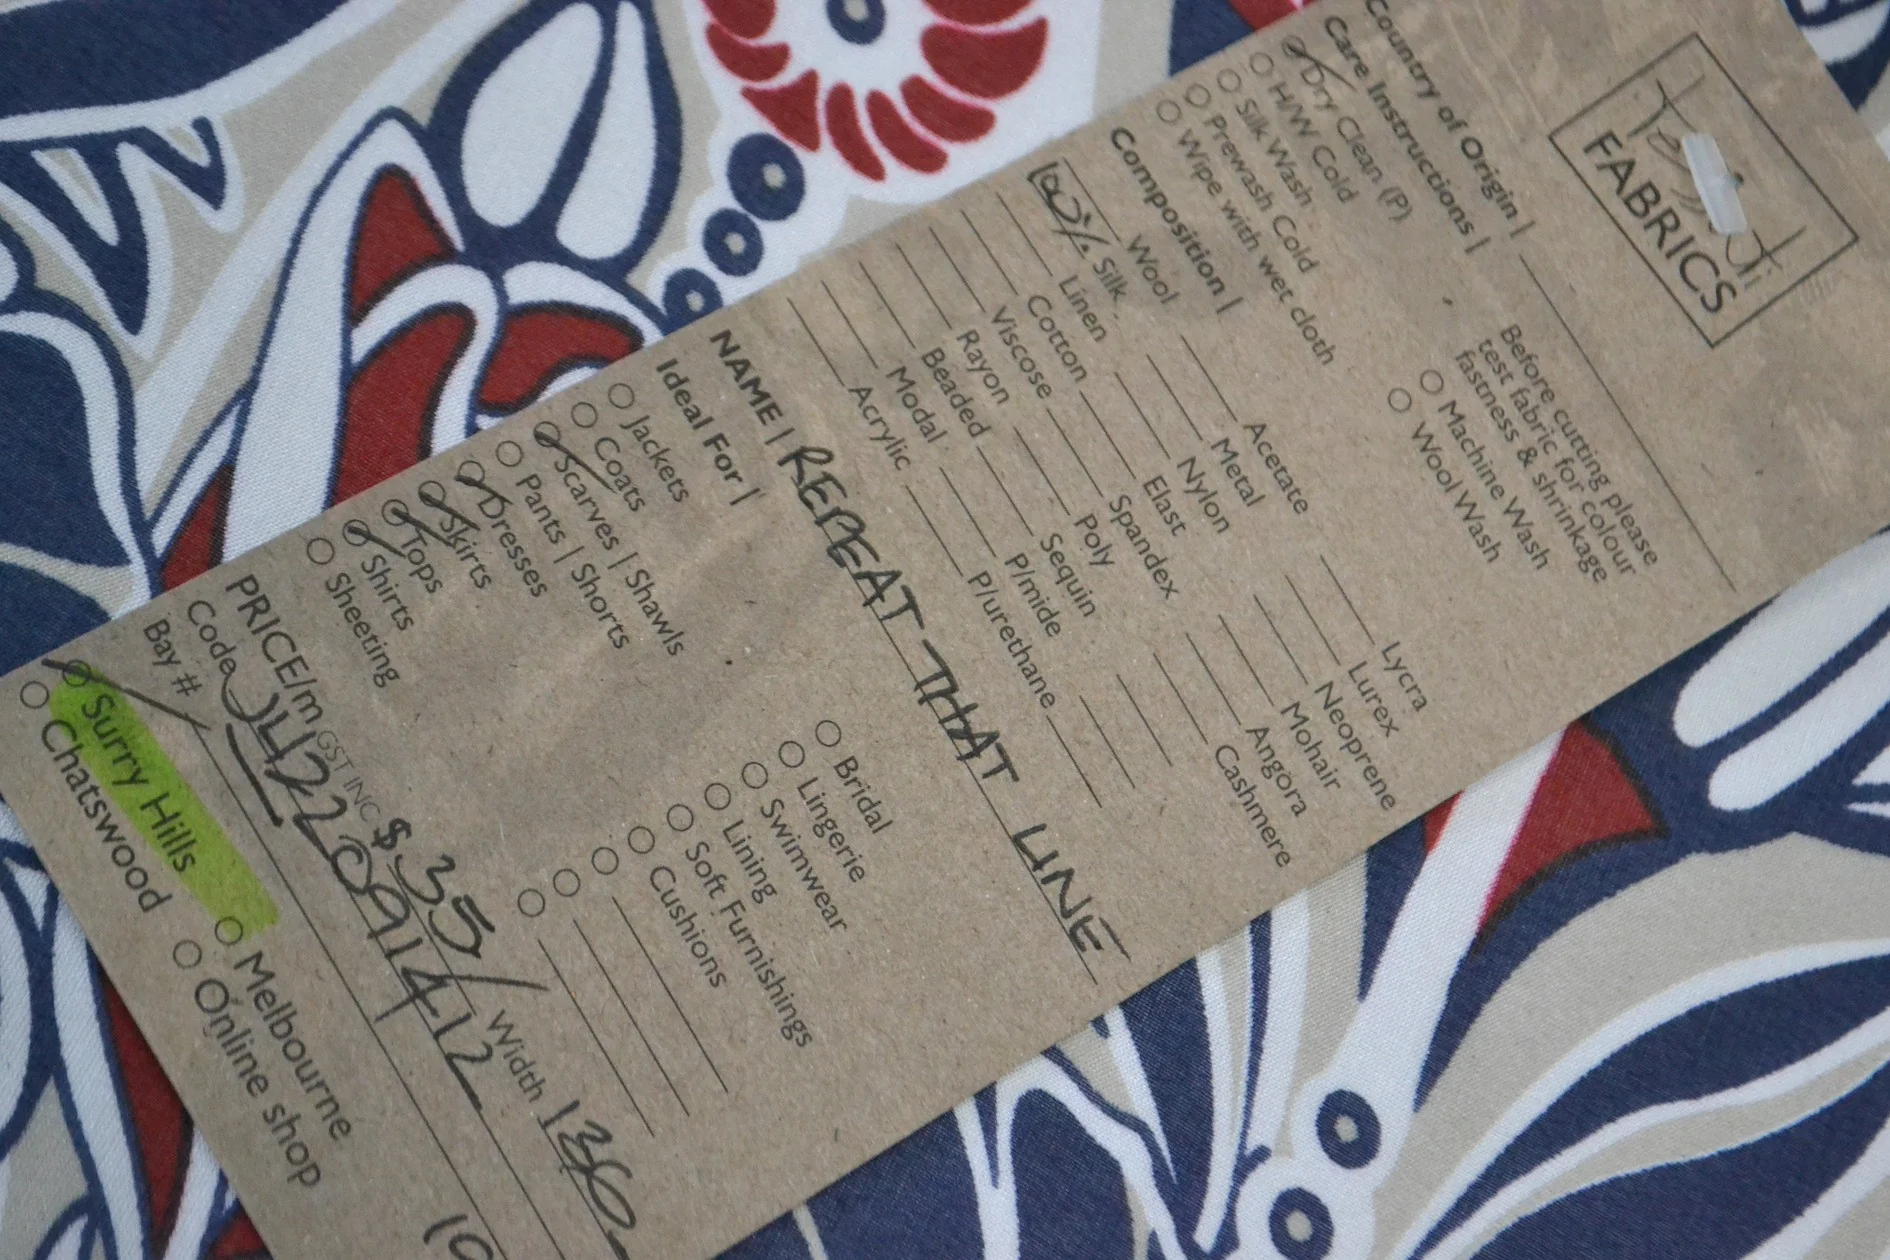 Tessuti
FABRICS
Country of Origin |
Care Instructions |
Dry Clean (P)
H/W Cold
Silk Wash
Prewash Cold
Wipe with wet cloth
Before cutting please
test fabric for colour
fastness & shrinkage
Machine Wash
Wool Wash
Composition |
Wool
100% Silk
Linen
Cotton
Viscose
Rayon
Beaded
Modal
Acrylic
Acetate
Metal
Nylon
Elast
Spandex
Poly
Sequin
P/mide
P/urethane
Lycra
Lurex
Neoprene
Mohair
Angora
Cashmere
NAME | REPEAT THAT LINE
Ideal For |
Jackets
Coats
Scarves | Shawls
Pants | Shorts
Dresses
Skirts
Tops
Shirts
Sheeting
Bridal
Lingerie
Swimwear
Lining
Soft Furnishings
Cushions
PRICE/m GST INC $35/ Width 136
Code
Bay #
Surry Hills
Chatswood
Melbourne
Online shop